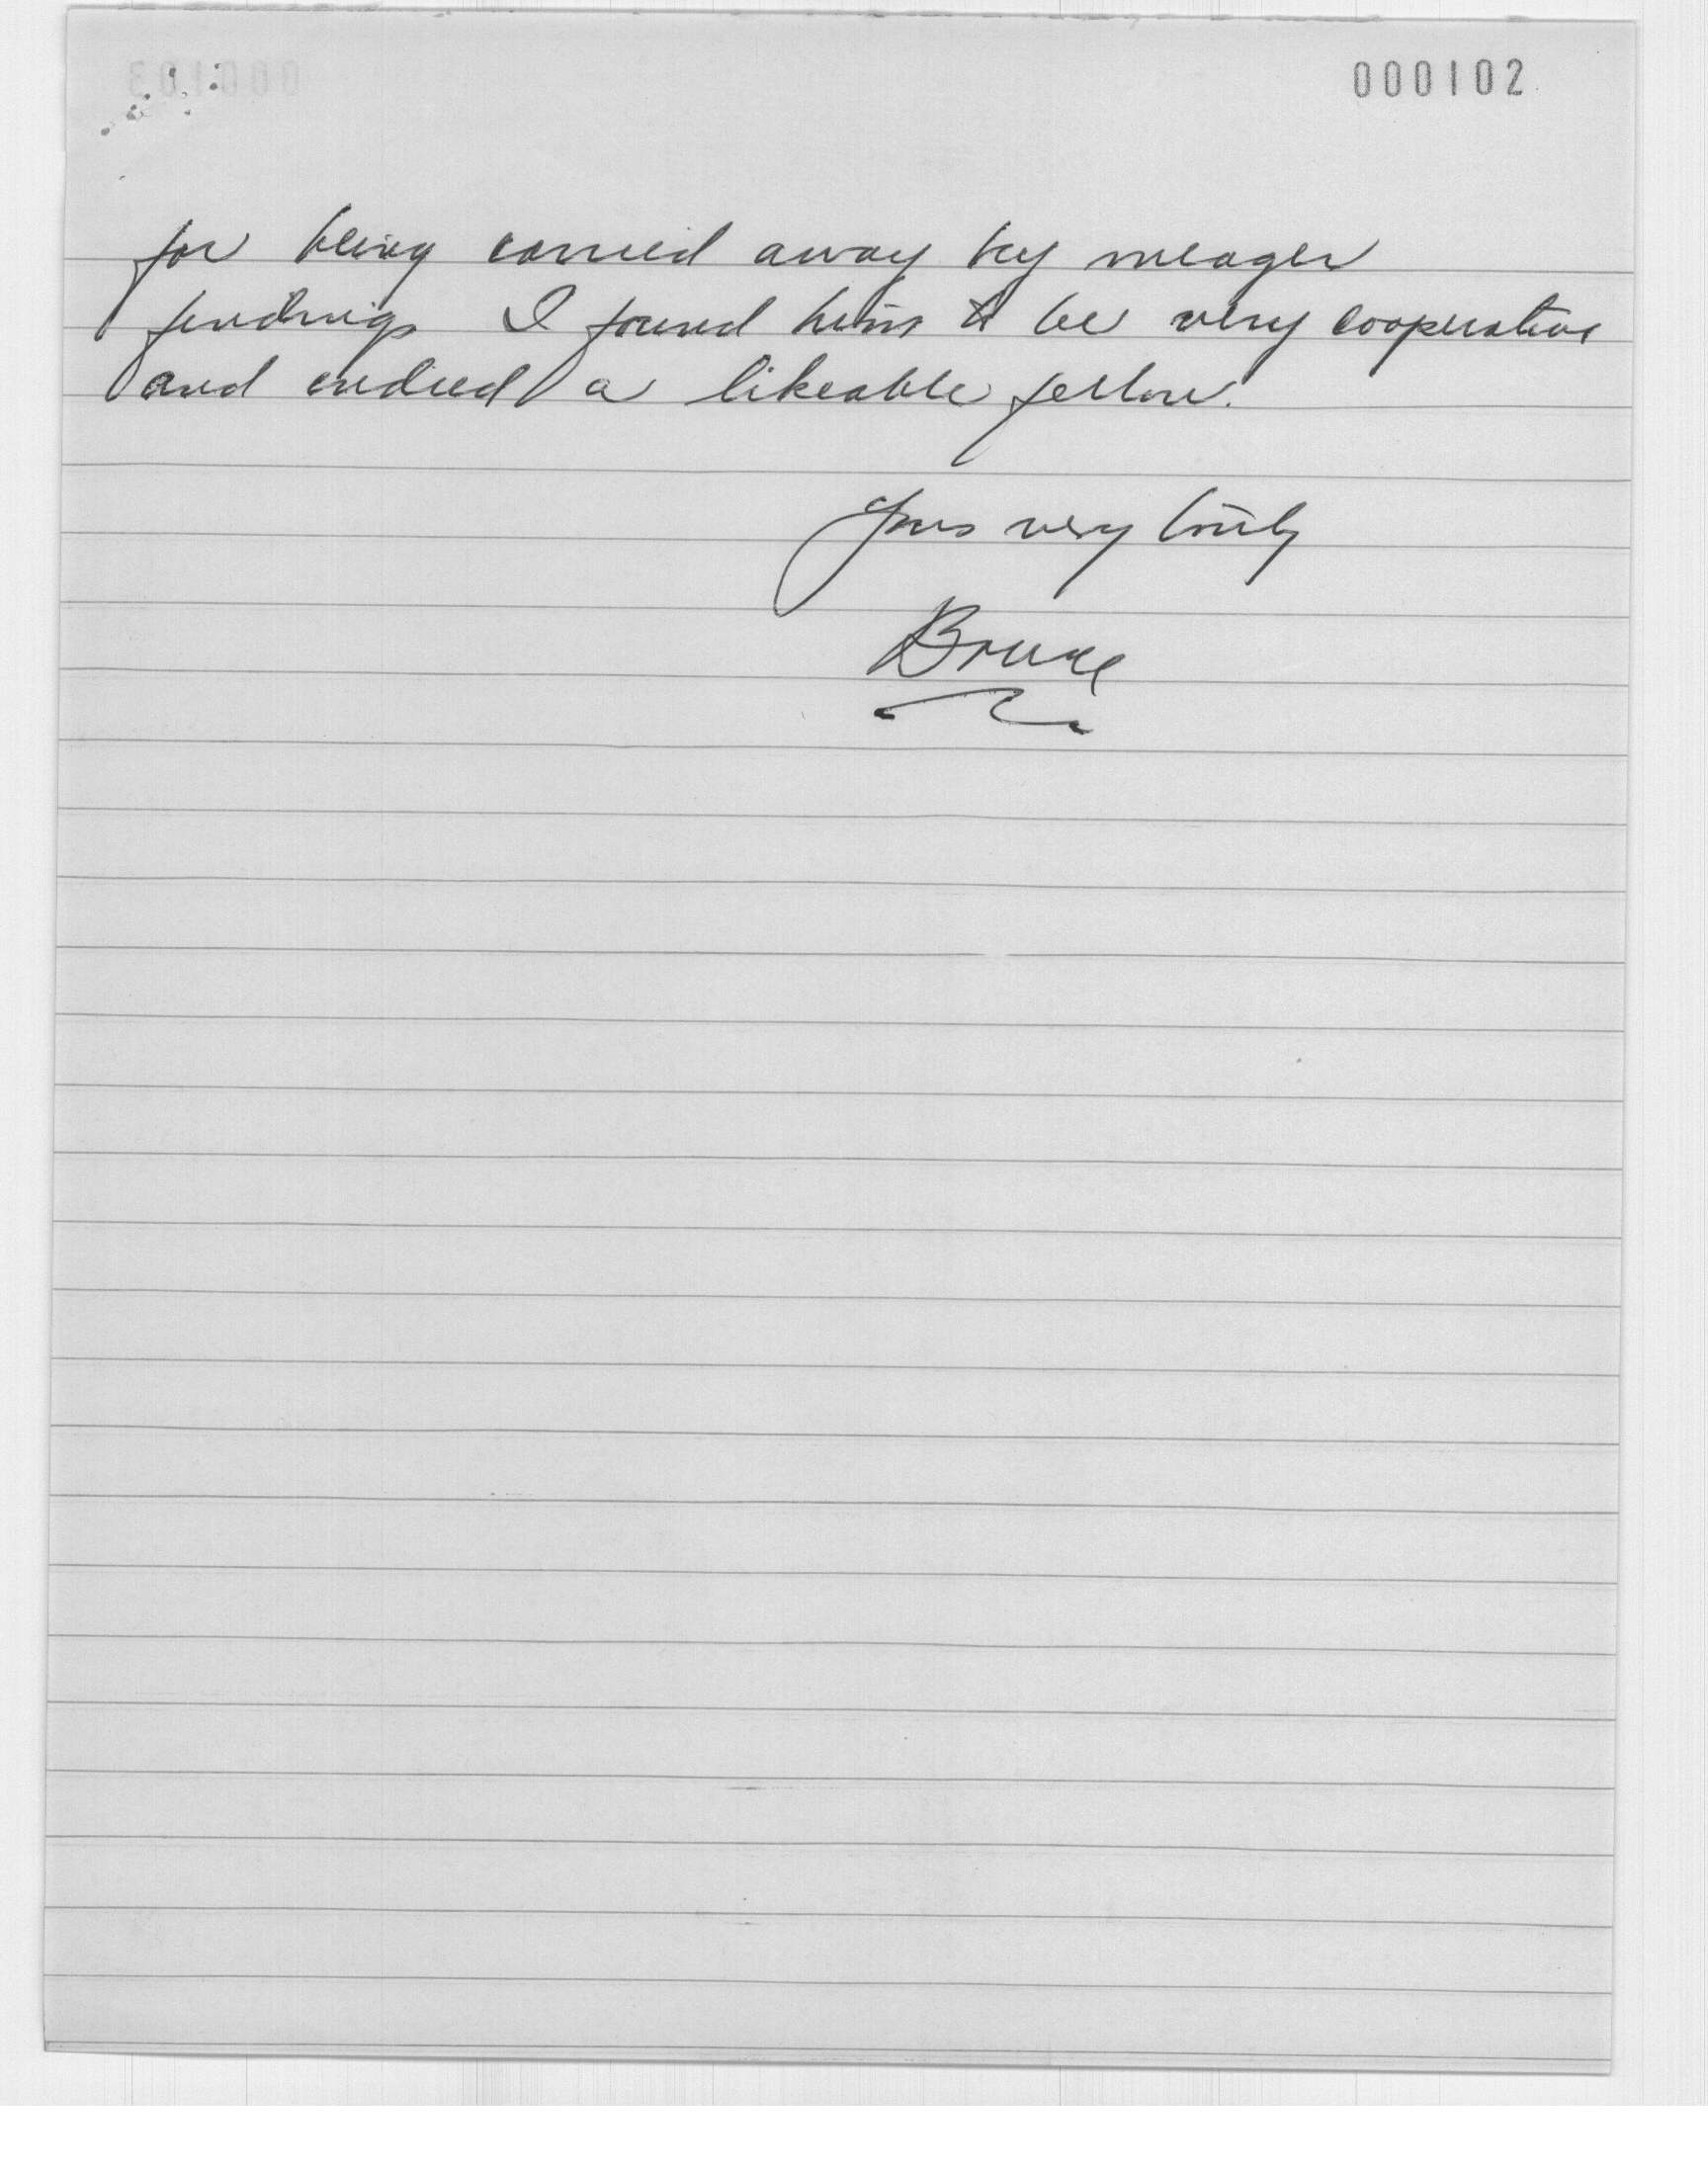 000102
for being carried away by meager
findings I found him to be very cooperative
and indeed a likeable fellow.
Yours very truly
Bruce